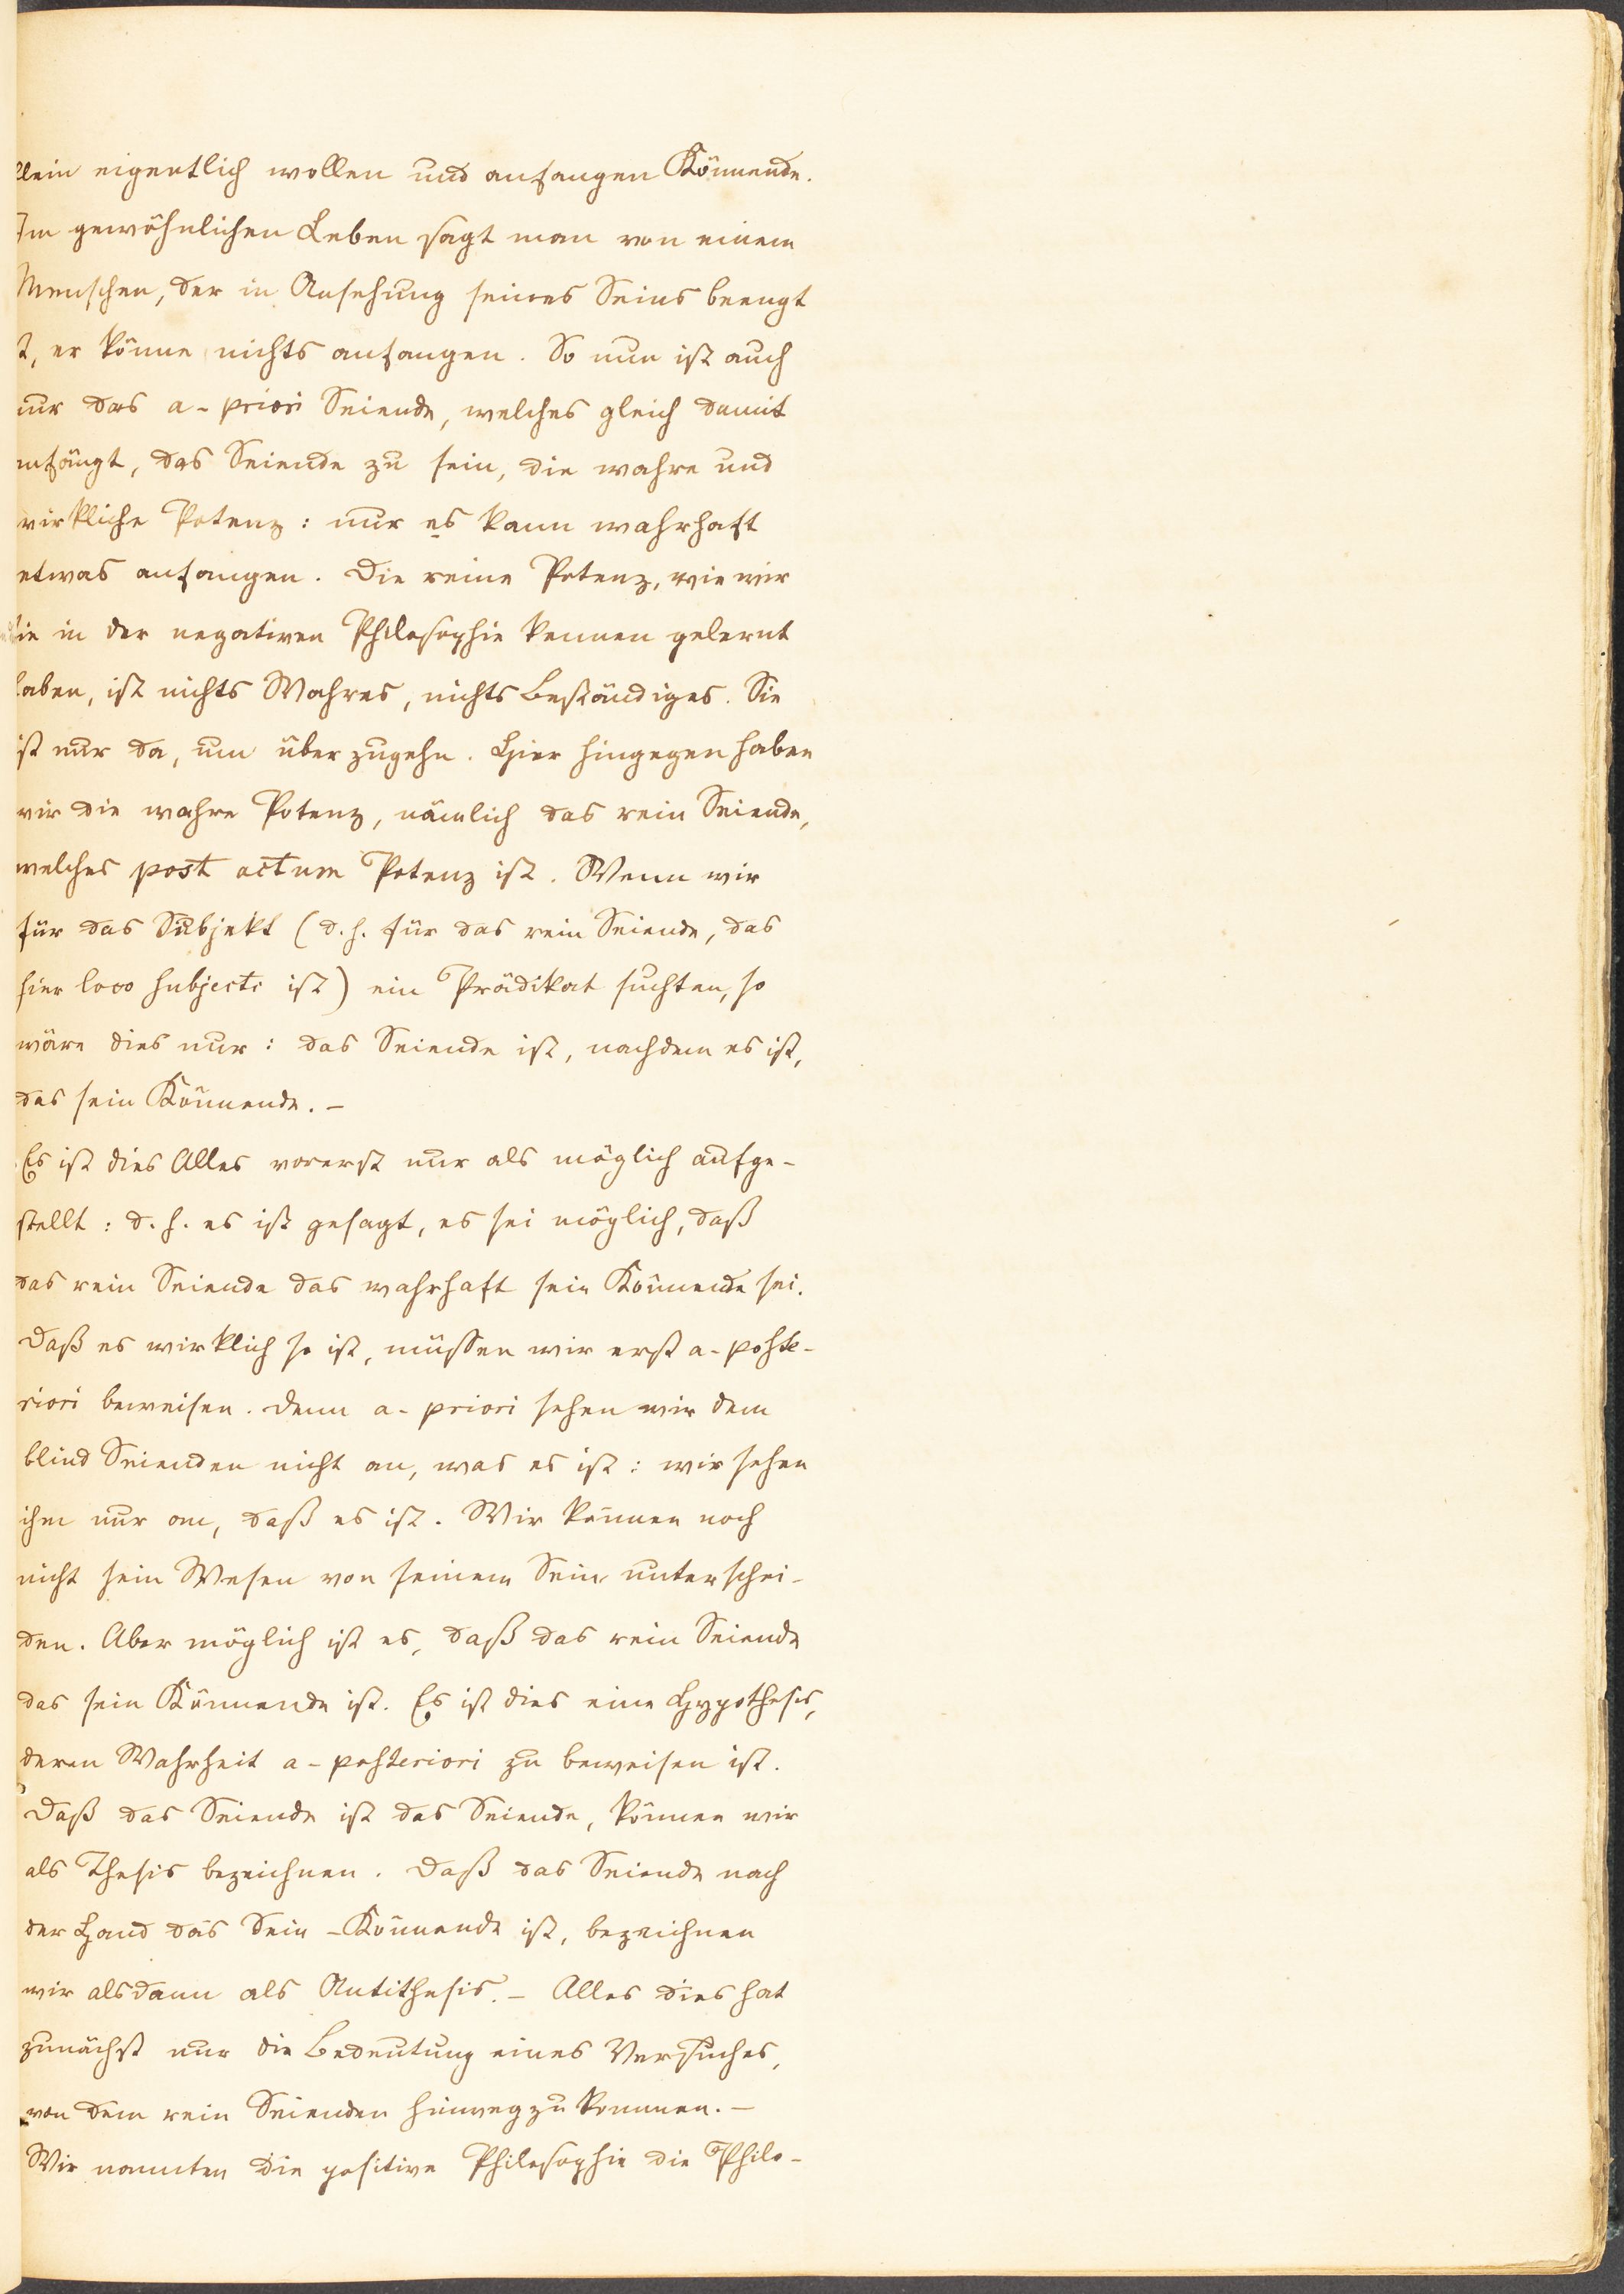 llein eigentlich wollen und anfangen Könnende.
Im gewöhnlichen Leben sagt man von einem
Menschen, der in Ansehung seines Seins beengt
t, er könne nichts anfangen. So nun ist auch
nur das a-priori Seiende, welches gleich damit
nfängt, das Seiende zu sein, die wahre und
wirkliche Potenz: nur es kann wahrhaft
etwas anfangen. Die reine Potenz, wie wir
sie in der negativen Philosophie kennen gelernt
haben, ist nichts Wahres, nichts Beständiges. Sie
ist nur da, um überzugehn. Hier hingegen haben
wir die wahre Potenz, nämlich das rein Seiende,
welches post actum Potenz ist. Wenn wir
für das Subjekt (d. h. für das rein Seiende, das
hier loco subjecti ist) ein Prädikat suchten, so
wäre dies nur: das Seiende ist, nachdem es ist,
das sein Könnende. –
Es ist dies Alles vorerst nur als möglich aufge-
stellt: d. h. es ist gesagt, es sei möglich, daß
das rein Seiende das wahrhaft sein Könnende sei.
Daß es wirklich so ist, müssen wir erst a-poste-
riori beweisen. Denn a-priori sehen wir dem
blind Seienden nicht an, was es ist: wir sehen
ihm nur an, daß es ist. Wir können noch
nicht sein Wesen von seinem Sein unterschei-
den. Aber möglich ist es, daß das rein Seiende
das sein Könnende ist. Es ist dies eine Hypothesis,
deren Wahrheit a-posteriori zu beweisen ist.
Daß das Seiende ist das Seiende, können wir
als Thesis bezeichnen. Daß das Seiende nach
der Hand das Sein-Könnende ist, bezeichnen
wir alsdann als Antithesis. – Alles dies hat
zunächst nur die Bedeutung eines Versuches,
von dem rein Seienden hinwegzukommen. –
Wir nannten die positive Philosophie die Philo-